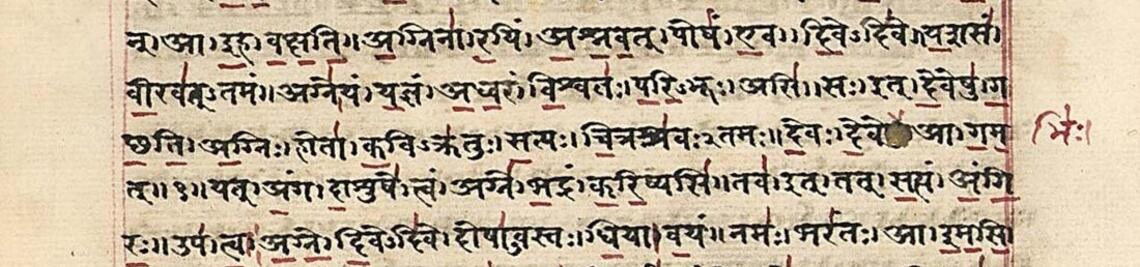 न्। आ। इह। वक्षति॥ अग्निना। रयिं। अश्नवत्। पोषं। एव। दिवेऽदिवे॥ यशसं
वीरवत्ऽतमं॥ अग्ने। यं। यज्ञं। अध्वरं। विश्वतः। परिऽभूः। असि॥ सः। इत्। देवेषु। ग
छति। अग्निः। होता। कविऽक्रतुः। सत्यः। चित्रश्रवःऽतमः॥ देवः। देवे आ। गम
भिः।
त्॥१॥ यत्। अंग। दाशुषे। त्वं। अग्ने। भद्रं। करिष्यसि॥ तव। इत्। तत्। सत्यं। अंगि
रः॥ उप। त्वा। अग्ने। दिवेऽदिवे। दोषाऽवस्तः। धिया। वयं॥ नमः। भरंतः। आ। इमसि